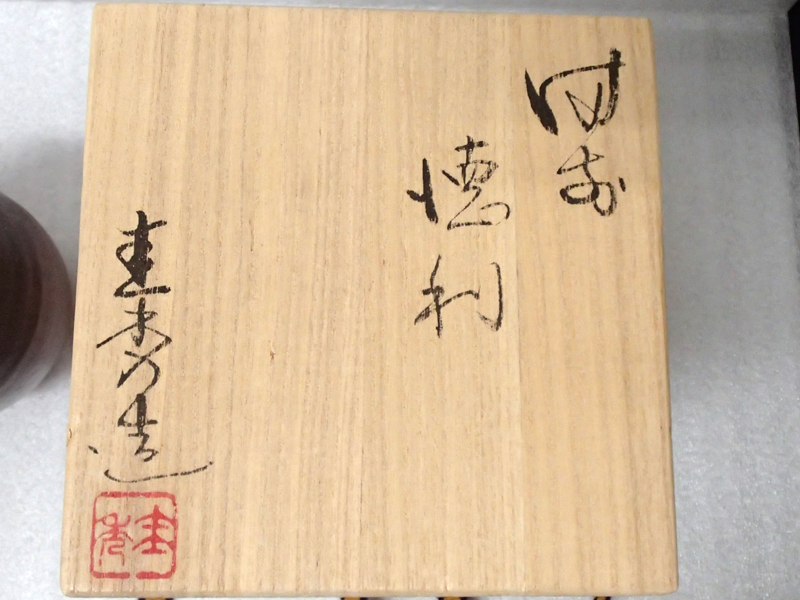 備前
徳利
圭秀造
圭秀